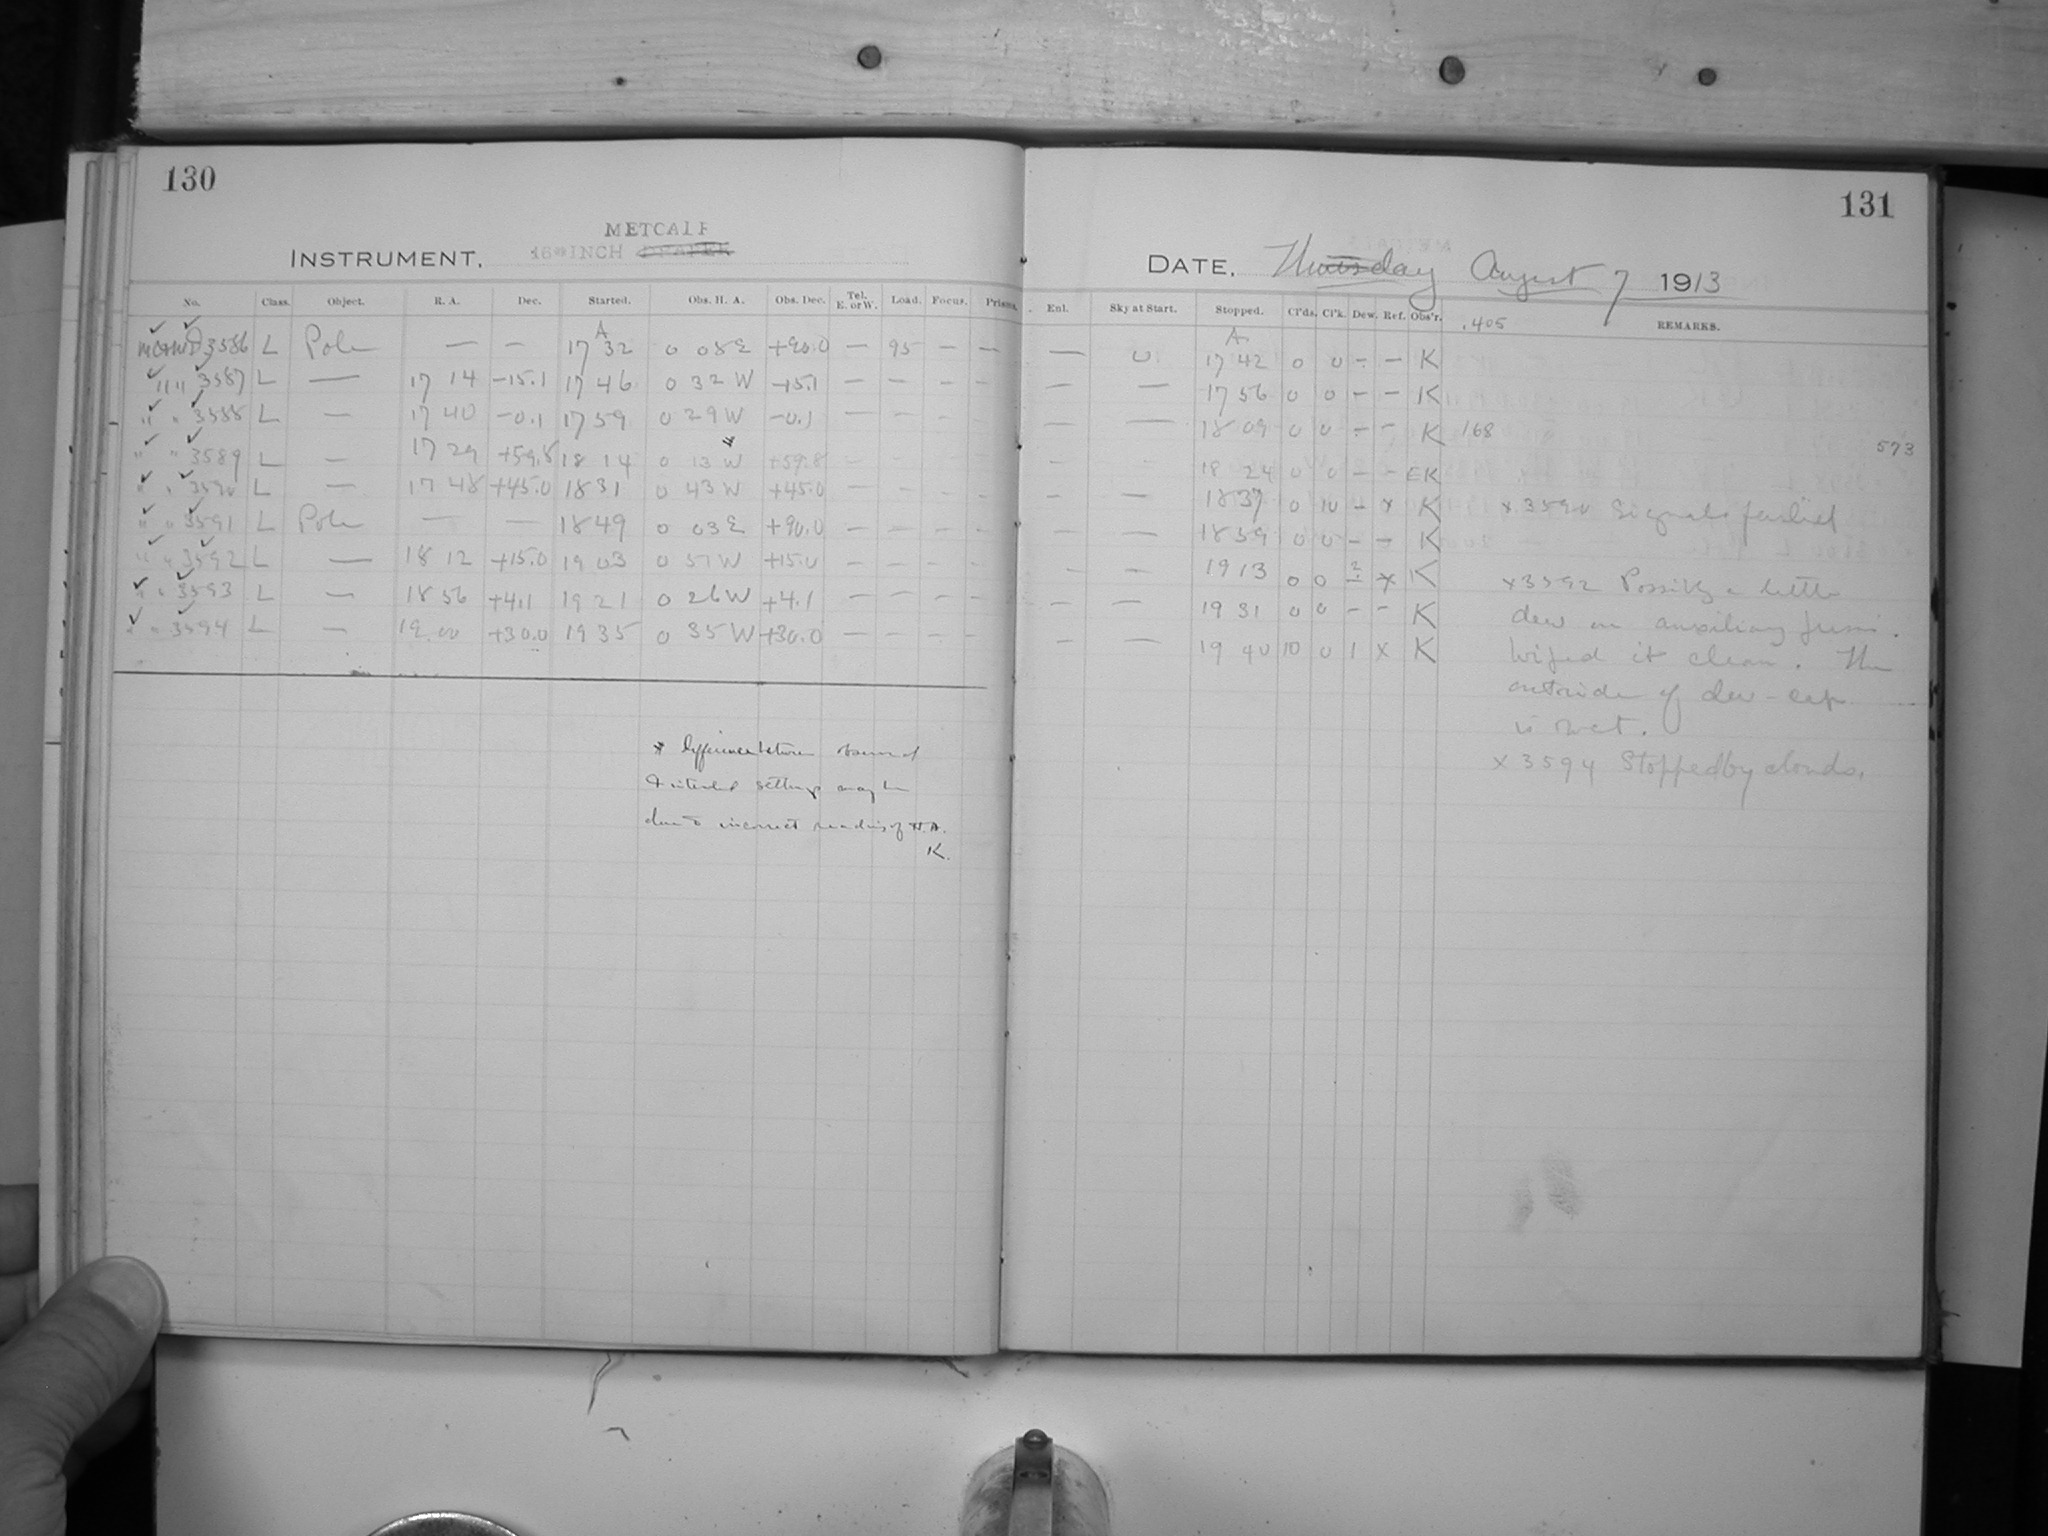 130
METCALF
INSTRUMENT, 16 INCH DRAPER
No. Class. Object. R. A. Dec. Started. Obs. H. A. Obs. Dec. Tel. E. or W. Load. Focus. Prisms.
A
3586 L Pole — — 17 32 0 08 E +90.0 — 95 — —
" " 3587 L — 17 14 -15.1 17 46 0 32 W -15.1 — — — —
" " 3588 L — 17 40 -0.1 17 59 0 29 W -0.1 — — — —
" " 3589 L — 17 29 +59.8 18 14 0 13 W +59.8 —
" " 3590 L — 17 48 +45.0 18 31 0 43 W +45.0 — — — —
" " 3591 L Pole — — 18 49 0 03 E +90.0 — — — —
" " 3592 L — 18 12 +15.0 19 03 0 51 W +15.0 — — — —
" " 3593 L — 18 56 +4.1 19 21 0 26 W +4.1 — — — —
" " 3594 L — 19 00 +30.0 19 35 0 35 W +30.0 — — — —
* Difference between observed
& intended settings may be
due to incorrect reading of H.A.
K.
131
DATE, Thursday August 7 1913
Enl. Sky at Start. Stopped. Cl'ds. Cl'k. Dew. Ref. Obs'r. .405 REMARKS.
A.
— 0 17 42 0 0 — — K
— — 17 56 0 0 — — K
— — 18 09 0 0 — — K 168
573
— — 18 24 0 0 — — EK
— — 18 37 0 10 — x K x 3590 Signals failed
— — 18 59 0 0 — — K
— — 19 13 0 0 2 x K x 3592 Possibly a little
— — 19 31 0 0 — — K dew on auxiliary prism.
— — 19 40 10 0 1 x K Wiped it clean. The
outside of dew-cap
is wet.
x 3594 Stopped by clouds.